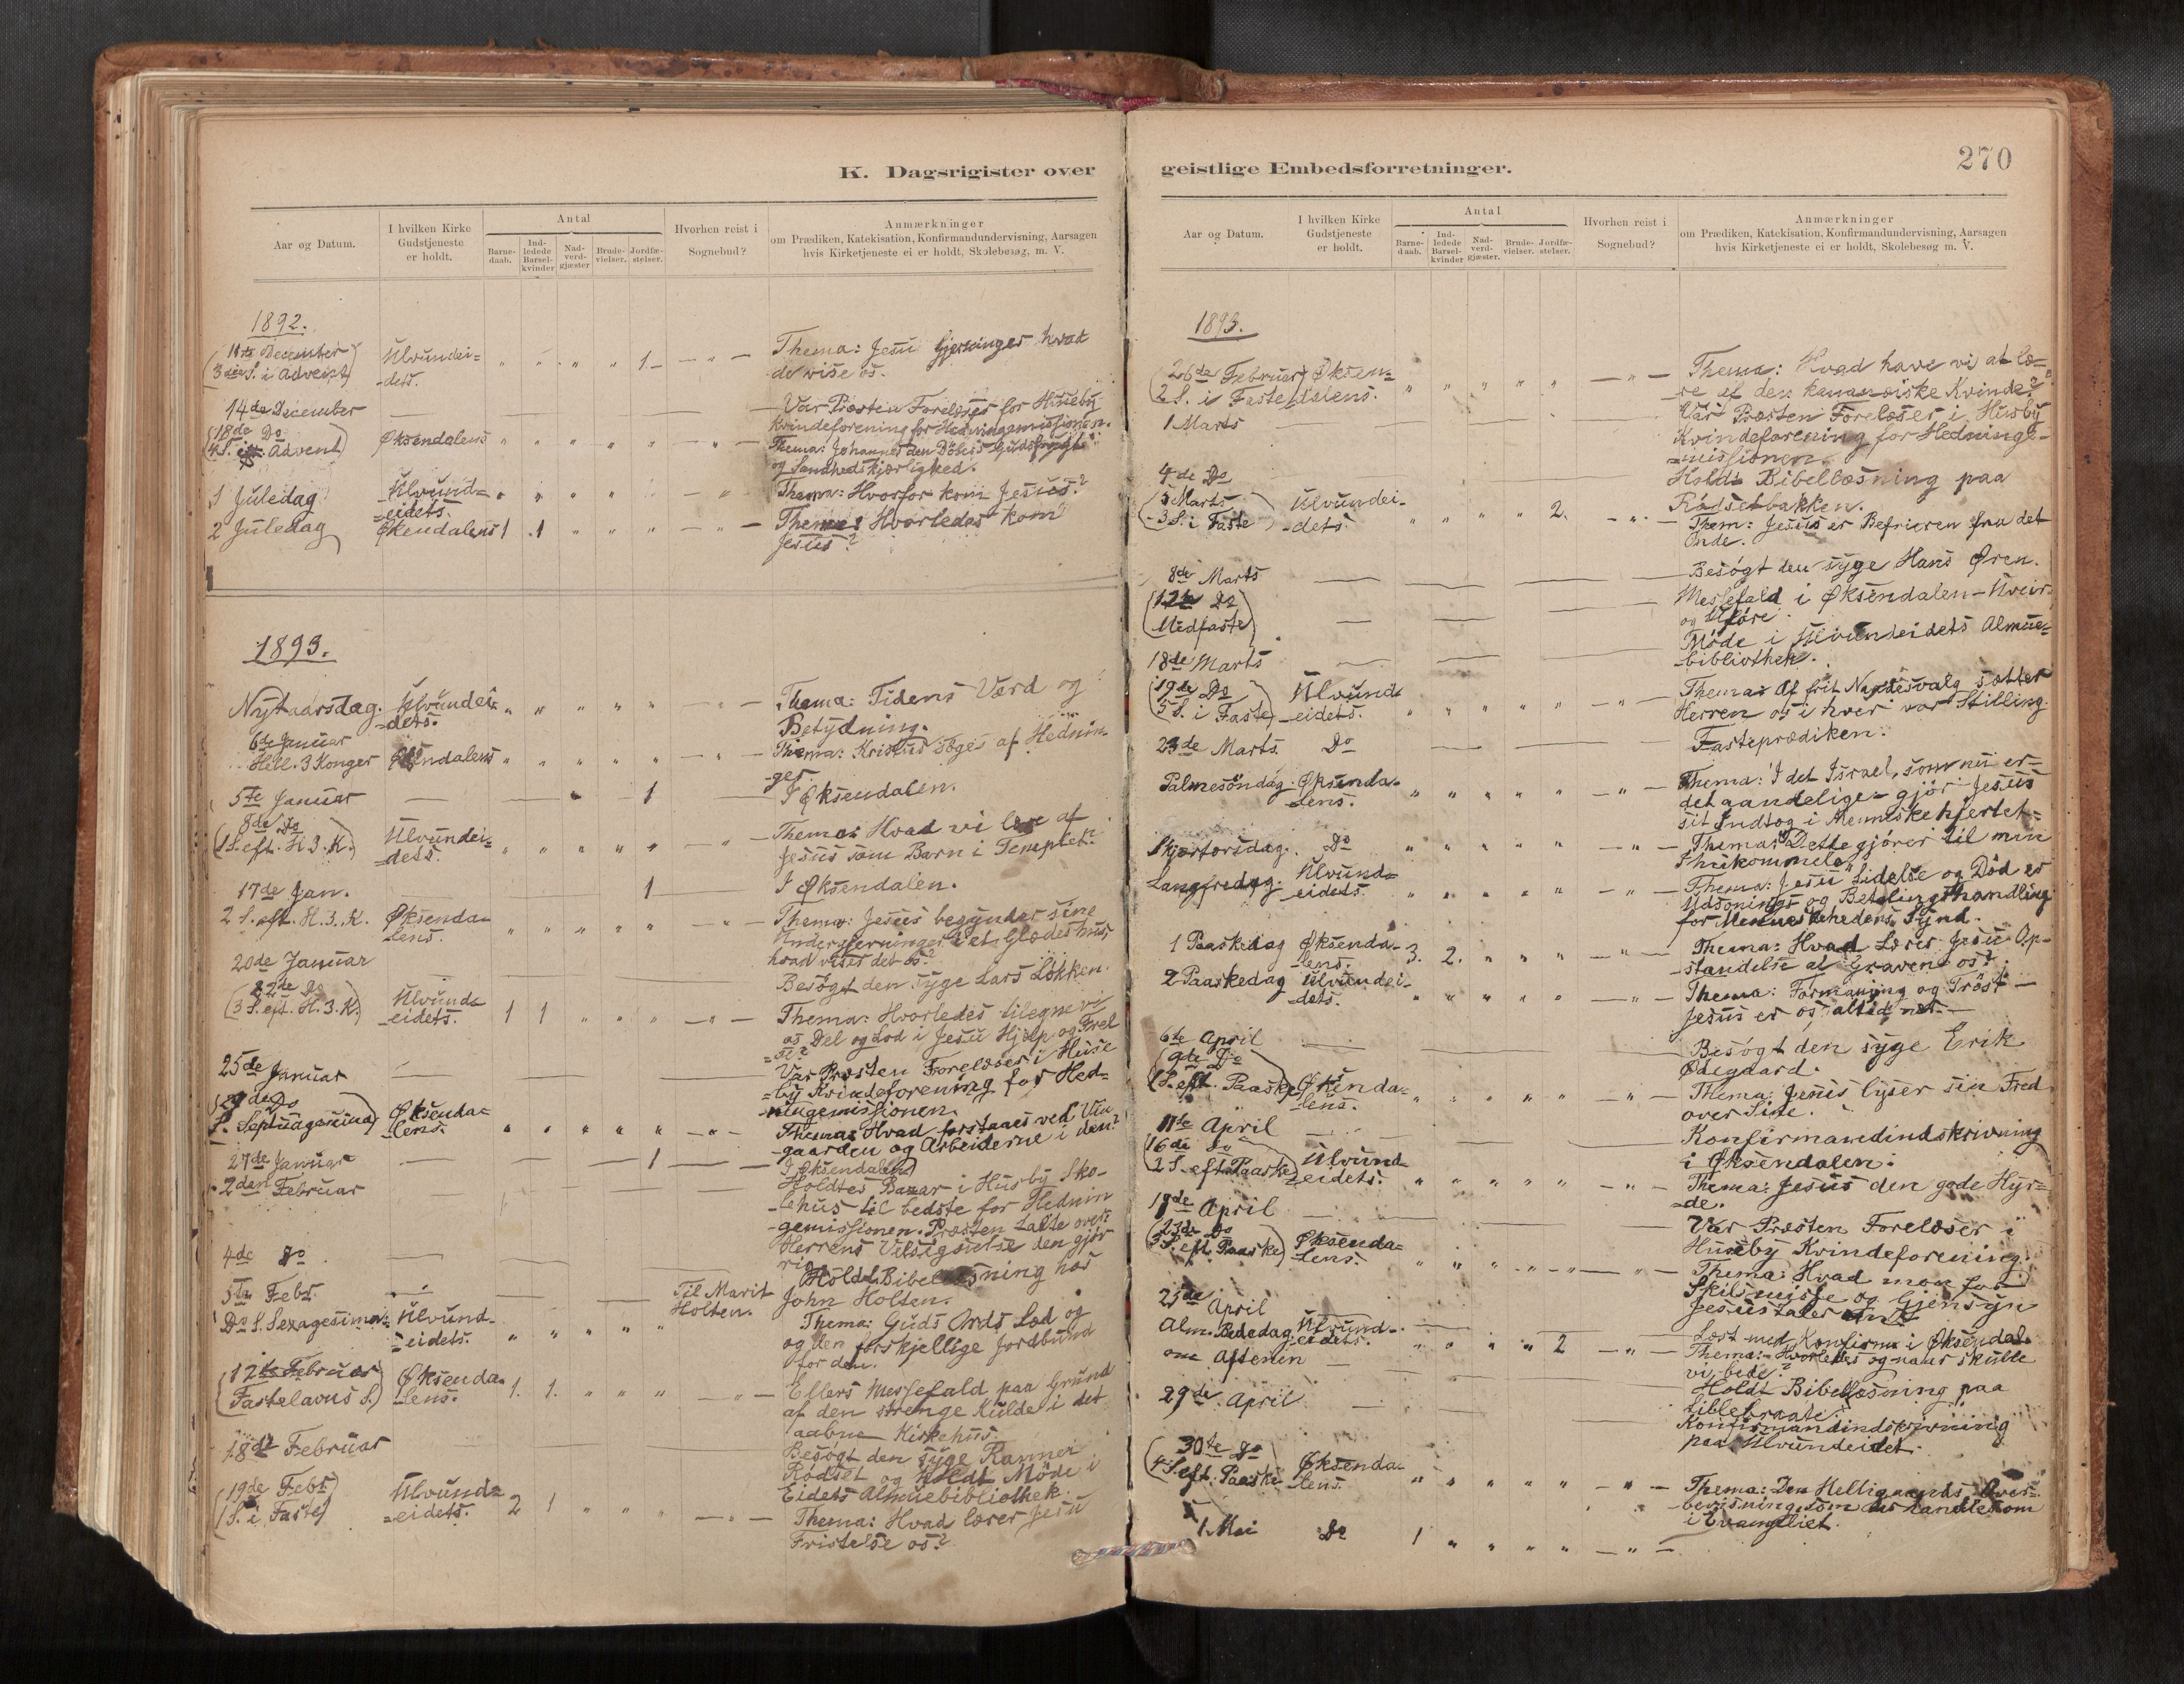 K. Dagsrigister over
Aar og Datum.
I hvilken Kirke Gudstjeneste er holdt.
Antal
Barne-daab.
Ind-ledede Barsel-kvinder
Nad-verd-gjæster.
Brude-vielser.
Jordfæ-stelser.
Hvorhen reist i Sognebud?
Anmærkninger
om Prædiken, Katekisation, Konfirmandundervisning, Aarsagen
hvis Kirketjeneste ei er holdt, Skolebesøg, m. V.
1892.
11te December (3die S. i Advent) Ulvundei=dets. " " " " 1 — " — Thema: Jesu Gjerninger hvad
de vise os.
14de December — — Var Præsten Forelæser for Huseby
Kvindeforening for Hedningemissionen.
(18de Do 4 S. i Advent) Øksendalens " " " " " — " — Thema: Johannes den Döbers Gudsfrygt
og Sandhedskjærlighed.
1 Juledag Ulvund=eidets. " " " " " — " — Thema: Hvorfor kom Jesus?
2 Juledag Øksendalens 1 1 " " " — " — Thema: Hvorledes kom
Jesus?
1893.
Nytaarsdag. Ulvundei=dets. " " " " " — " — Thema: Tidens Værd og
Betydning.
6de Januar Hell. 3 Konger Øksendalens " " " " " — " — Thema: Kristus söges af Hednin-
ger
5te Januar — — 1 — I Øksendalen.
(8de Do 1 S. eft. H. 3. K.) Ulvundei=dets. " " " " " — " — Thema: Hvad vi lære af
Jesus som Barn i Templet.
17de Jan. — — 1 — I Øksendalen.
2 S. eft. H. 3. K. Øksenda=lens. " " " " " — " — Thema: Jesus begynder sine
Undergjerninger i et Glædeshus,
hvad viser det os?
20de Januar — — Besøgt den syge Lars Løkken.
(22de Do 3 S. eft. H. 3. K.) Ulvund=eidets. 1 1 " " " — " — Thema: Hvorledes tilegne vi
os Del og Lod i Jesu Hjælp og Frel
=se?
25de Januar — — Var Præsten Forelæser i Huse
=by Kvindeforening for Hed=
-ningemissionen.
(29de Do S. Septuagesima) Øksenda=lens. " " " " " — " — Thema: Hvad forstaaes ved Vin
-gaarden og Arbeiderne i den?
27de Januar — — 1 — I Øksendalen
2den Februar — — Holdtes Bazar i Husby Sko-
-lehus til bedste for Hednin
-gemissionen. Præsten talte over:
Herrens Velsignelse den gjör
rig.
4de Do — — Holdt Bibellæsning hos
John Holten.
5te Febr. — — Til Marit Holten.
Do S. Sexagesima Ulvund-eidets. " " " " " Thema: Guds Ords Sæd og
og den forskjellige Jordbund
for den.
(12te Februar Fastelavns S.) Øksenda=lens. 1. 1. " " " — " — Ellers Messefald paa Grund
af den strenge Kulde i det
aabne Kirkehus.
18de Februar — — Besøgt den syge Rannei
Rødset og holdt Möde i
Eidets Almuebibliothek.
(19de Febr. 1 S. i Faste) Ulvund=eidets. 2 1 " " " — " — Thema: Hvad lærer Jesu
Fristelse os?
geistlige Embedsforretninger.
270
Aar og Datum.
I hvilken Kirke Gudstjeneste er holdt.
Antal
Barne-daab.
Ind-ledede Barsel-kvinder
Nad-verd-gjæster.
Brude-vielser.
Jordfæ-stelser.
Hvorhen reist i Sognebud?
Anmærkninger
om Prædiken, Katekisation, Konfirmandundervisning, Aarsagen
hvis Kirketjeneste ei er holdt, Skolebesøg m. V.
1893.
(26de Februar 2 S. i Faste) Øksen=dalens. " " " " " — " — Thema: Hvad have vi at læ-
-re af den kananæiske Kvinde?
1 Marts — — Var Præsten Forelæser i Husby
Kvindeforening for Hednings-
=missionen.
4de Do Holdt Bibellæsning paa
Rødsetbakken.
(5 Marts 3 S. i Faste) Ulvundei-dets. " " " " 2. — " — Them: Jesus er Befrieren fra det
Onde.
8de Marts — — Besøgt den syge Hans Øren.
(12te Do Midfaste) — — Messefald i Øksendalen – Uveir
og Uföre.
18de Marts — — Möde i Ulvundeidets Almue=
-bibliothek.
(19de Do 5 S. i Faste) Ulvund-eidets. " " " " " — " — Thema: Af frit Naadesvalg sætter
Herren os i hver vor Stilling.
23de Marts. Do — — Fasteprædiken.
Palmesöndag. Øksenda-lens. " " " " " — " — Thema: I det Israel, som nu er-
det aandelige- gjör Jesus
sit Indtog i Menneskehjertet.
Skjærtorsdag. Do " " " " " — " — Thema: "Dette gjører til min
Ihukommelse"
Langfredag. Ulvund=eidets. " " " " " — " — Thema: Jesu Lidelse og Död er
Udsonings og Betalingshandling
for Menneskehedens Synd.
1 Paaskedag Øksenda-lens. 3. 2. " " " — " — Thema: Hvad Lærer Jesu Op-
-standelse af Graven os?
2 Paaskedag Ulvundei-dets. " " " " " — " — Thema: Formaning og Tröst —
Jesus er os altid nær.
6te April — — Besøgt den syge Erik
Ødegaard.
(9de Do 1 S. eft. Paaske) Øksenda=lens. " " " " " — " — Thema: Jesus lyser sin Fred
over Sine.
11te April — — Konfirmandindskrivning
i Øksendalen.
(16de Do 2 S. eft. Paaske) Ulvund-eidets. " " " " " — " — Thema: Jesus den gode Hyr=
=de.
18de April — — Var Præsten Forelæser i
Huseby Kvindeforening.
(23de Do 3 S. eft. Paaske) Øksenda=lens. " " " " " — " — Thema: Hvad
Skilsmisse og Gjensyn
Jesus taler om?
25de April — — Læst med Konfirm. i Øksendal.
Alm. Bededag Ulvund-eidets. " " " " 2 — " — Thema: Hvorledes og naar skulle
vi bede?
om Aftenen — — Holdt Bibellæsning paa
29de April — — Konfirmandindskrivning
paa Ulvundeidet.
(30te Do 4 S. eft. Paaske) Øksenda-lens. " " " " " — " — Thema: Den Helligaands Over=
-bevisning som der handles om
i Evangeliet.
1 Mai Do 1 " " " " — " —